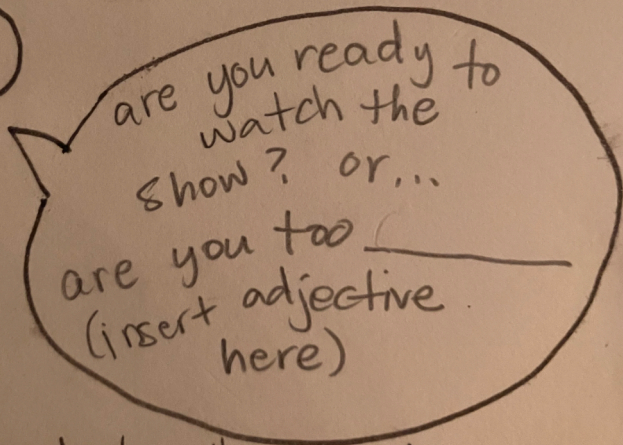 are you ready to
watch the
show? or...
are you too ________
(insert adjective
here)